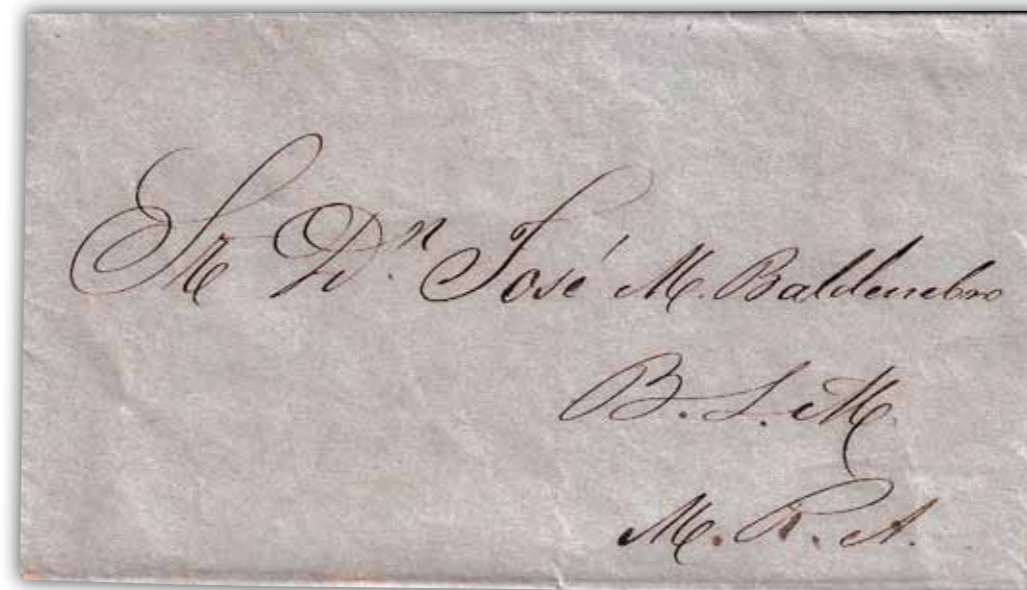 Sr Dn. José M. Baldenebro
B. S. M.
M. R. A.